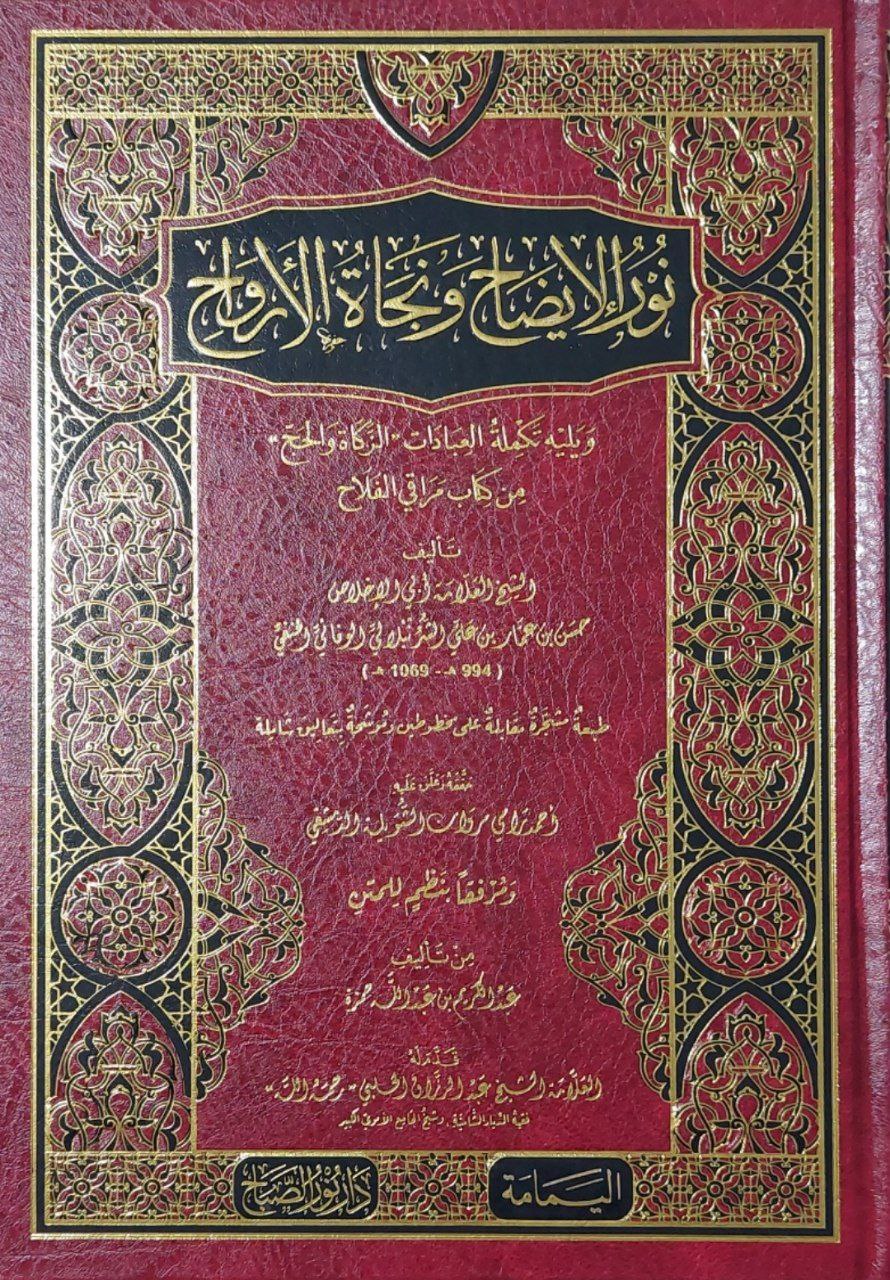 نُورُ الإِيضَاحِ وَنَجَاةُ الأَرْوَاحِ
وَيَليْه تَكْمِلَةُ العِبَادَات «الزَّكَاة وَالحَجّ»
مِن كِتَاب مَرَاقي الفَلَاح
تَأليف
الشيخ العَلّامَة أبي الإخلاص
حسَن بن عمّار بن عَليّ الشُّرُنْبُلاليّ الوفائيّ الحنفيّ
( 994 هـ - 1069 هـ )
طبعةٌ مشجّرةٌ مقابلةٌ على مخطوطين وموشّحةٌ بتعاليق شاملة
حَقَّقَهُ وَعَلّقَ عَلَيه
أحمد رَامي الشويلة الدّمشقي
وَمُرْفَقاً بنَظْمٍ لِلمَتنِ
مِنْ تَأْلِيفِ
عَبْد الكريم بن عَبْد اللَّه حمزة
قَدّمَ لَهُ
العَلّامَة الشيخ عَبْد الرزّاق الحلبي «رَحِمَهُ اللَّه»
فقيه الدّيار الشّاميّة، وشيخُ الجامع الأموي الكبير
اليَمامَة
دَارُ نُورُ الصَّبَاحِ